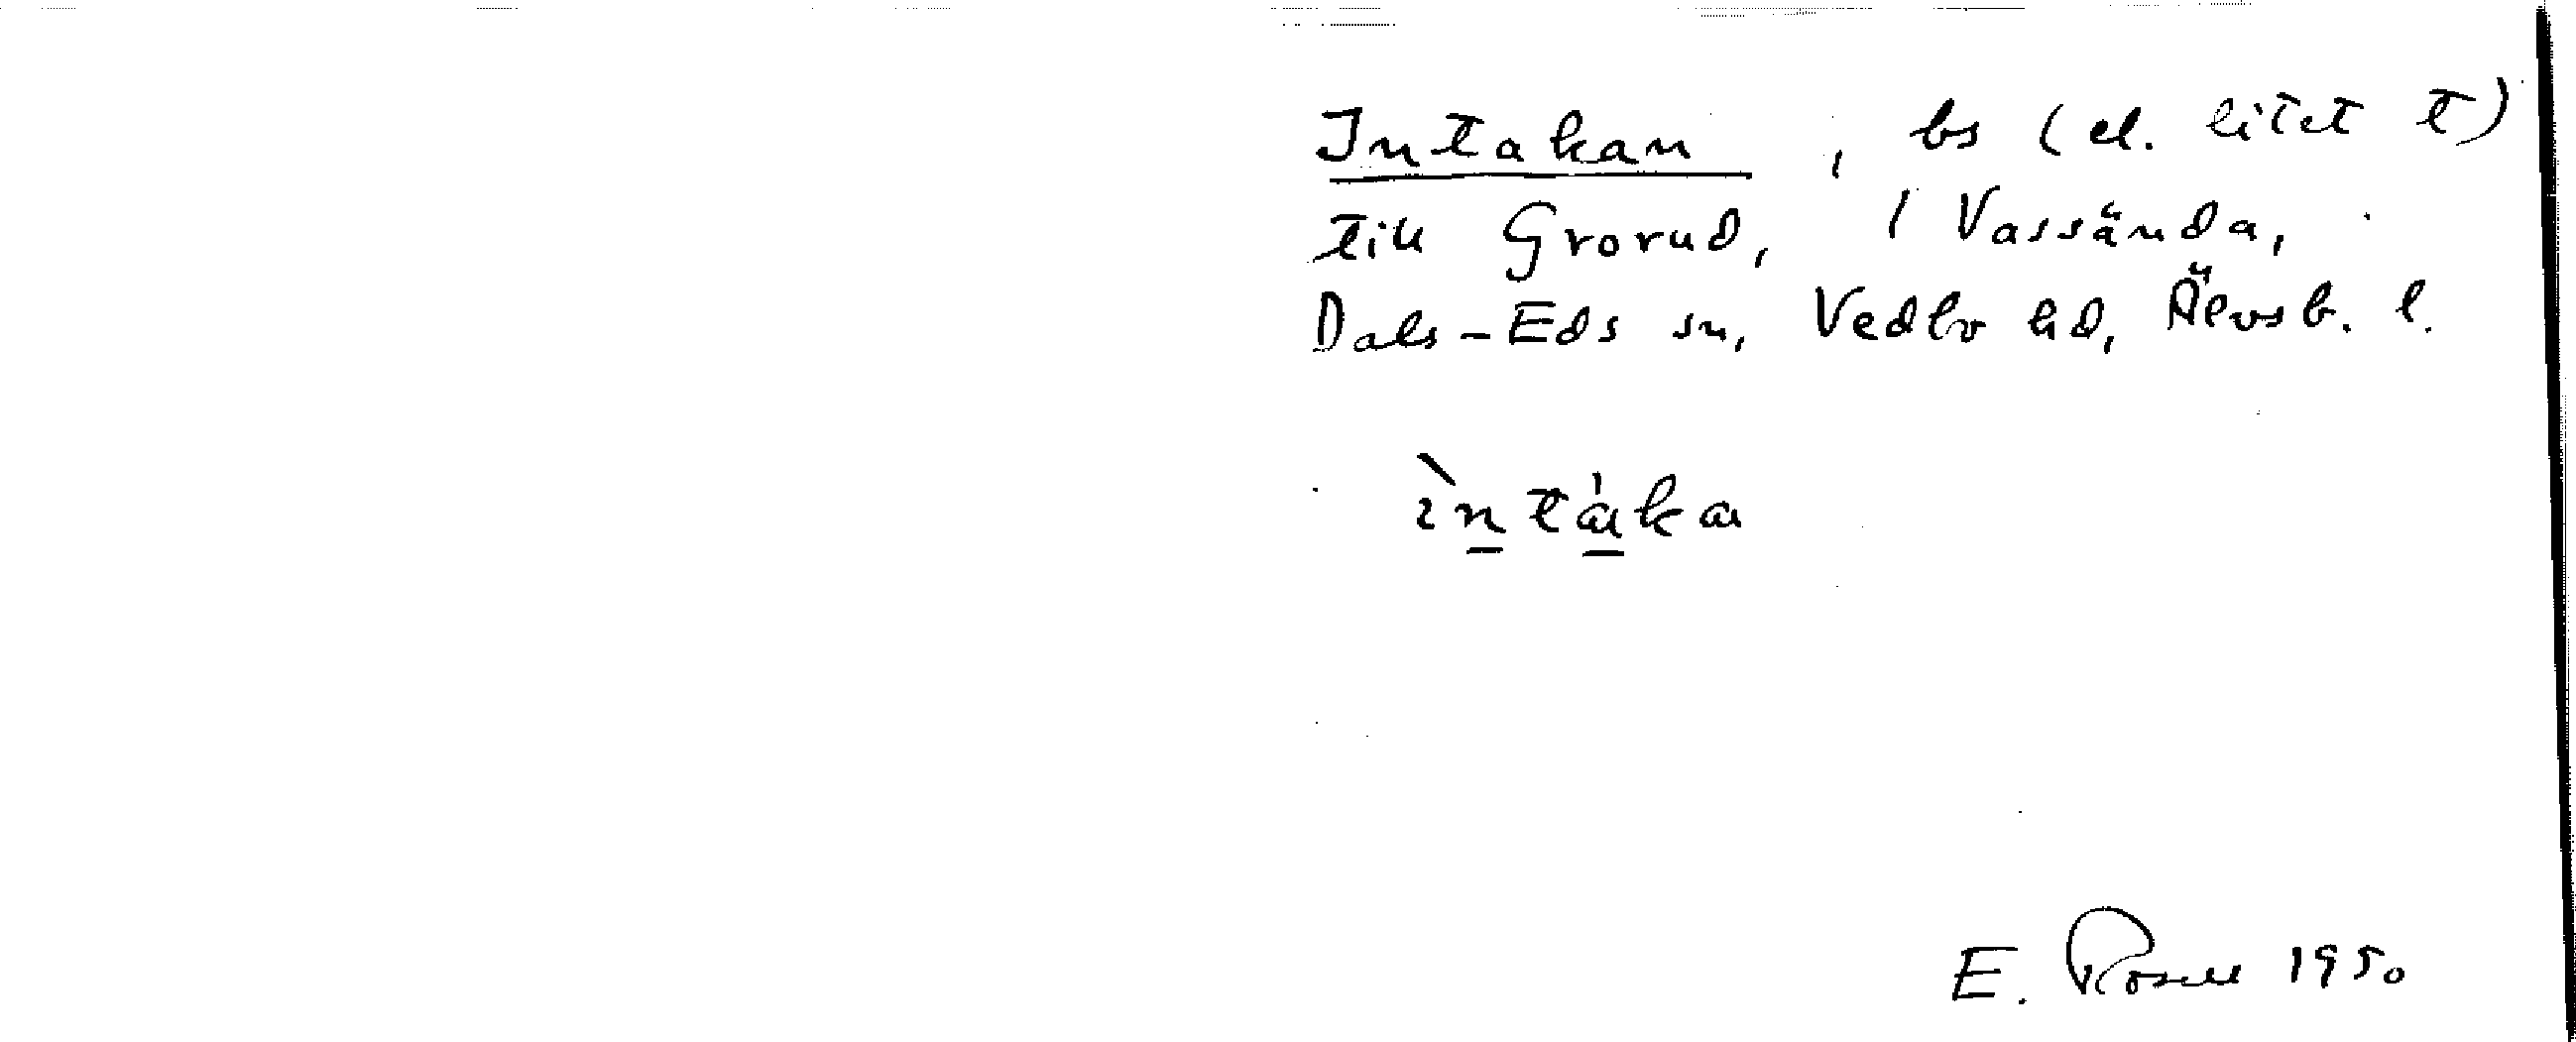 Intakan, bs (el. litet t)
till Grorud, / Vassända,
Dals-Eds sn, Vedbo hd, Älvsb. l.
ìntàka
E. Rosell 1950